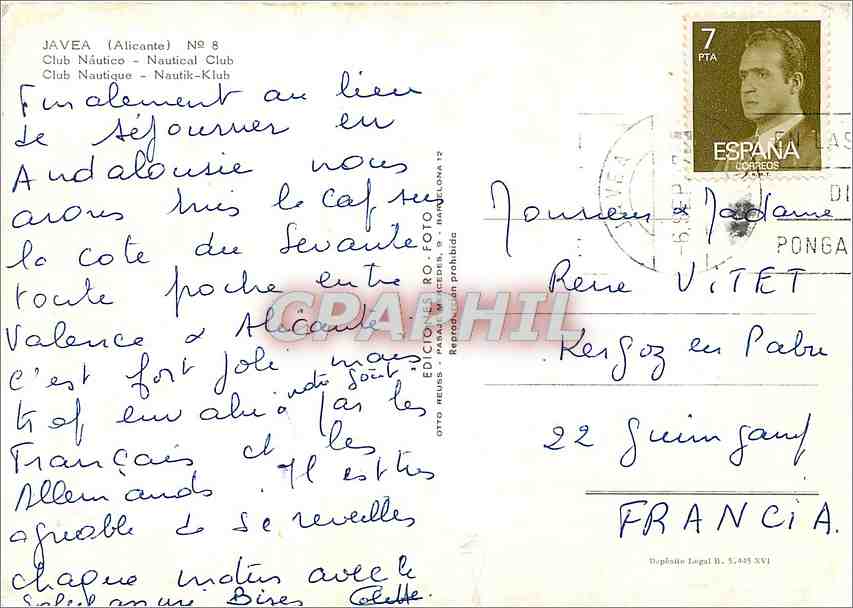 JAVEA (Alicante) Nº 8
Club Náutico - Nautical Club
Club Nautique - Nautik-Klub
Finalement au lieu
de séjourner en
Andalousie nous
avons mis le cap sur
la cote du Levante
toute proche entre
Valence & Alicante.
C'est fort joli mais
trop envahi à notre goût par les
Français et les
Allemands. Il est très
agréable de se reveiller
chaque matin avec le
Soleil Bises Colette.
EDICIONES RO-FOTO
OTTO REUSS - PASAJE MERCEDES, 9 - BARCELONA 12
Reproducción prohibida
CPAPHIL
7
PTA
ESPAÑA
CORREOS
JAVEA
-6. SEP. 7
EN LAS
DI
PONGA
Monsieur & Madame
Rene VITET
Kergoz en Pabu
22 Guingamp
FRANCIA.
Depósito Legal B. 5.445 XVI